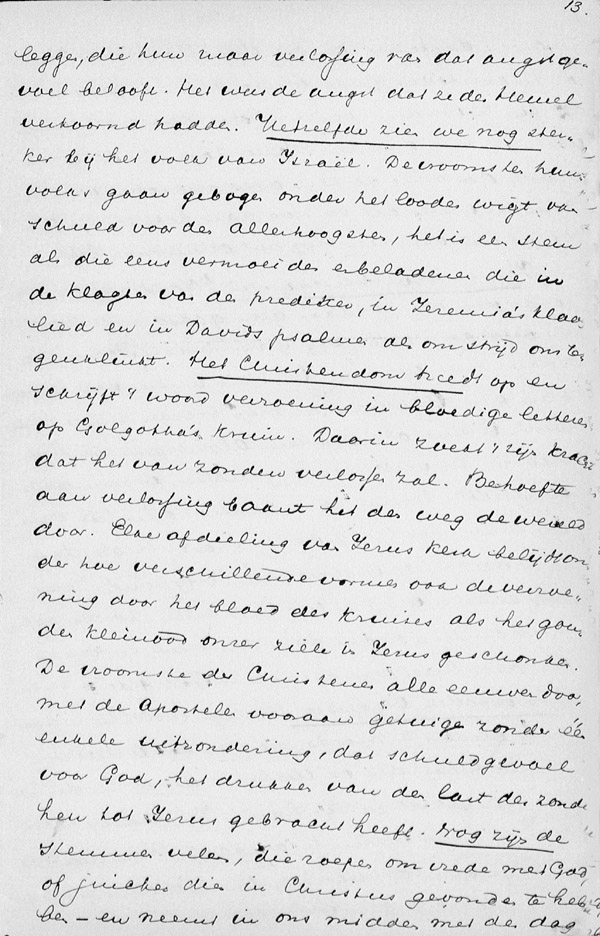 13.
legger, die hun maar verlossing van dat angstge-
voel belooft. Het was de angst dat ze den Hemel
vertoornd hadden. Hetzelfde zien we nog ster-
ker bij het volk van Israël. De vroomsten huns
volks gaan gebogen onder het looden wigt van
schuld voor den Allerhoogsten, het is een stem
als die eens vermoeiden en beladenen die in
de klagten van den prediker, in Jeremia's klaag
lied en in Davids psalmen als om strijd ons te-
genklinkt. Het Christendom treedt op en
schrijft 't woord verzoening in bloedige letteren
op Golgotha's kruin. Daarin zoekt 't zijn kracht
dat het van zonden verlossen zal. Behoefte
aan verlossing baant het den weg de wereld
door. Elke afdeeling van Jezus kerk belijdt on
der hoe verschillende vormen ook de verzoe-
ning door het bloed des kruises als het gou-
den kleinood onzer ziele in Jezus geschonken.
De vroomste der Christenen alle eeuwen door,
met de Apostelen vooraan getuigen zonder één
enkele uitzondering, dat schuldgevoel
voor God, het drukken van den last der zonde
hen tot Jezus gebracht heeft. Nog zijn de
stemmen velen, die roepen om vrede met God,
of juichen dien in Christus gevonden te heb
ben - en neemt in ons midden met den dag